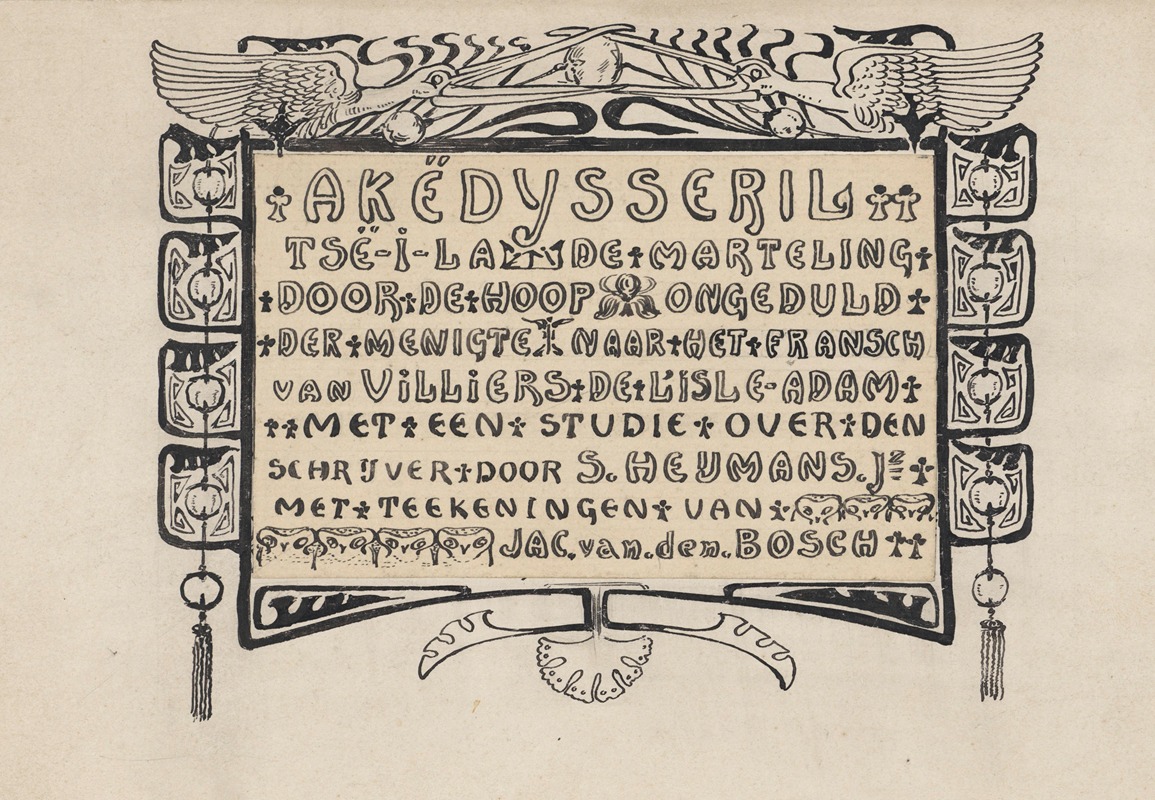 AKËDYSSERIL
TSË-I-LA DE MARTELING
DOOR DE HOOP ONGEDULD
DER MENIGTE NAAR HET FRANSCH
VAN VILLIERS DE L'ISLE-ADAM
MET EEN STUDIE OVER DEN
SCHRIJVER DOOR S. HEIJMANS. Jz
MET TEEKENINGEN VAN
JAC. van. den. BOSCH